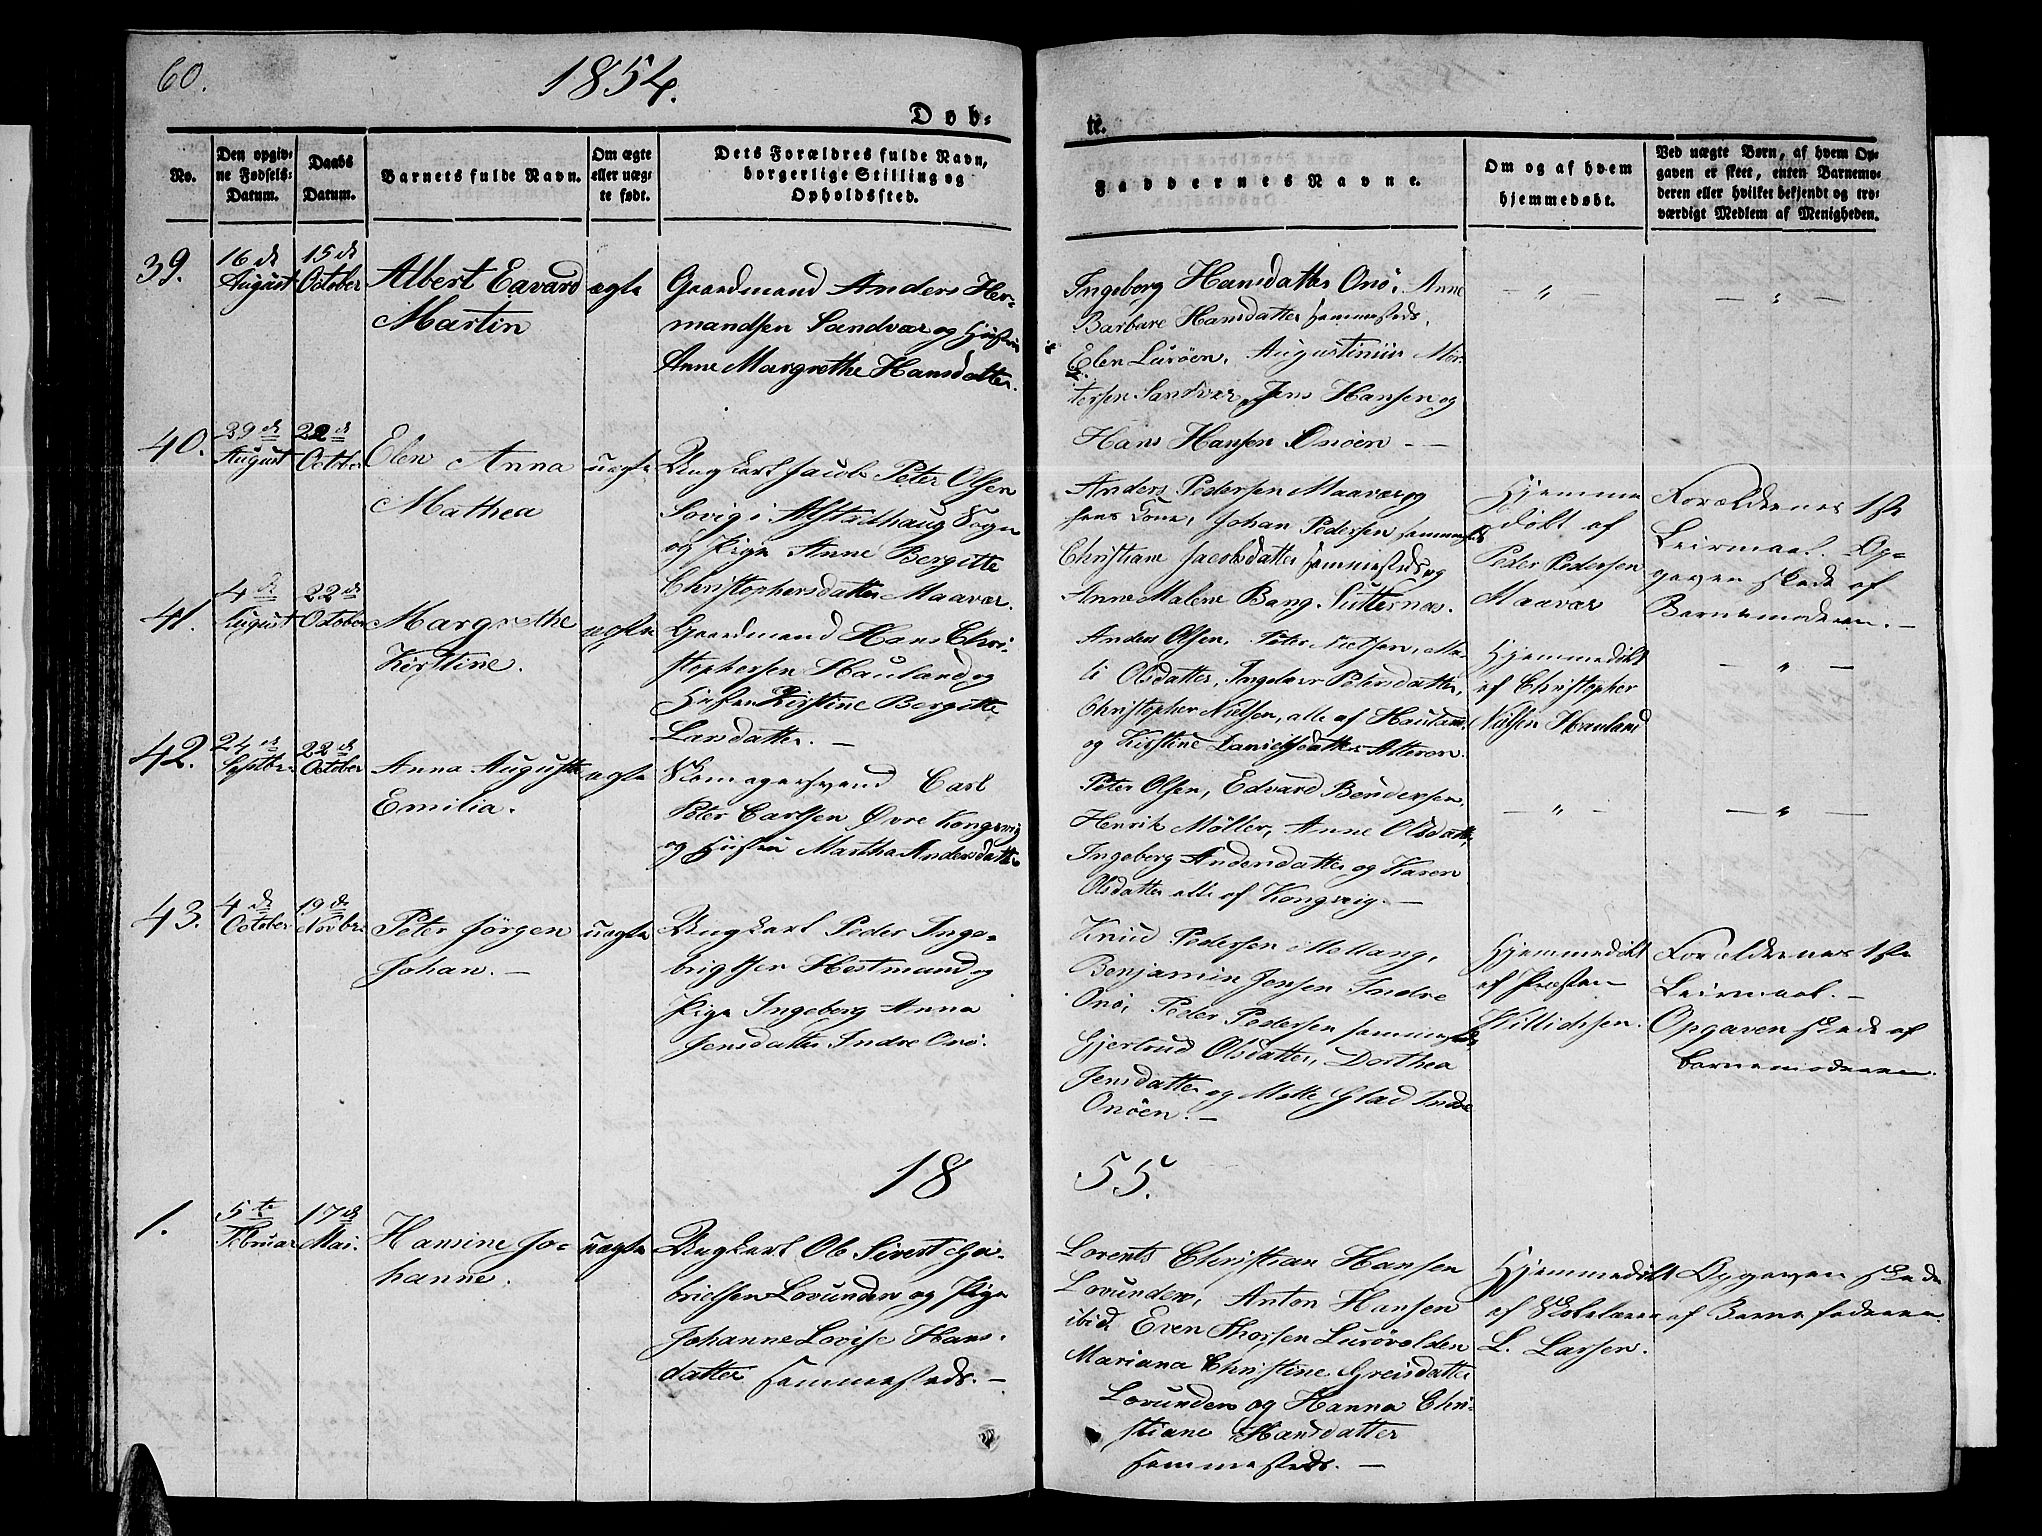 60.
1854.
Døb-
te.
No.
Den opgiv-
ne Fødsels-
Datum.
Daabs
Datum.
Barnets fulde Navn.
Om ægte
eller uæg-
te født.
Dets Forældres fulde Navn,
borgerlige Stilling og
Opholdssted.
Faddernes Navne.
Om og af hvem
hjemmedøbt.
Ved uægte Børn, af hvem Op-
gaven er skeet, enten Barnemo-
deren eller hvilket bekjendt og tro-
værdigt Medlem af Menigheden.
39.
16de
August
15de
October
Albert Eavard
Martin
ægte
Gaardmand Anders Her-
mandsen Sandvær og Hustru
Anne Margrethe Hansdatter.
Ingeborg Hansdatter Onö, Anne
Barbare Hansdatter sammesteds,
Elen Luröen, Augustinus Mor-
tersen Sandvær, Jens Hansen og
Hans Hansen Onöen -
- " -
- " -
40.
August
22de
October
Elen Anna
Mathea
uægte
Ungkarl Jacob Peter Olsen
Sövig i Alstadhaug Sogn
og Pige Anne Bergitte
Christophersdatter Maavær.
Anders Pedersen Maavær og
hans Kone, Johan Pedersen sammesteds
Christiane Jacobsdatter sammesteds og
Anne Malene Bang
Hjemme
døbt af
Peder Pedersen
Maavær
Forældrenes 1ste
Leirmaal. Op-
gaven skede af
Barnemoderen. -
41.
4de
August
22de
October
Margrethe
Kirstine.
ægte
Gaardmand Hans Chri-
stophersen Hauland og
Hustru Kirstine Bergitte
Larsdatter. -
Anders Olsen, Peter Nielsen, Ma-
li Olsdatter, Ingebor Petersdatter,
Christopher Nielsen, alle af Hauland,
og Kirstine Danielsdatter Alteren.
Hjemmedöbt
af Christopher
Nielsen Hauland
- " -
42.
24de
Septbr
22de
October
Anna Augusta
Emilia.
ægte
Skomagersvend Carl
Peter Carlsen Øvre Kongsvig
og Hustru Martha Andersdatter
Peter Olsen, Edvard Bendersen,
Henrik Møller, Anne Olsdatter,
Ingeborg Andersdatter og Karen
Olsdatter alle af Kongsvig. -
- " -
- " -
43.
4de
October
19de
Novbr
Peter Jörgen
Johan. -
uægte
Ungkarl Peder Inge-
brigtsen Hestmand og
Pige Ingeborg Anna
Jensdatter Indre Onö.
Knud Pedersen Mollang,
Benjamin Jensen Indre
Onö, Peder Pedersen sammesteds,
Gjertrud Olsdatter, Dorthea
Jensdatter og Mette Glad Indre
Onöen. -
Hjemmedöbt
af Præsten
Killichsen.
Forældrenes 1ste
Leirmaal. -
Opgaven skede af
Barnemoderen.
18
55.
1.
5te
Februar
17de
Mai.
Hansine Jo-
hanne.
uægte
Ungkarl Ole Sivert Ga-
brielsen Lovunden og Pige
Johanne Lovise Hans-
datter sammesteds. -
Lorents Christian Hansen
Lovunden, Anton Hansen
ibid Even Thorsen Lurövolden
Mariana Christine Greisdatter
Lovunden og Hanna Chri-
stiane Hansdatter
sammesteds. -
Hjemmedöbt
af Skolelærer
L. Larsen.
Opgaven skede
af Barnefaderen.